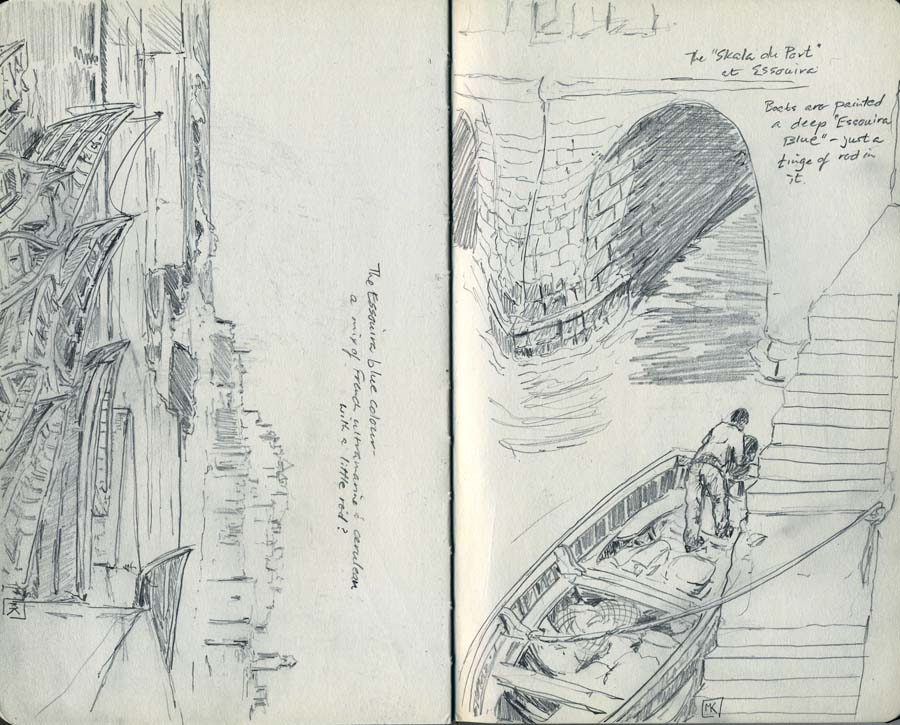 The Essouira blue colour -
a mix of French ultramarine & cerulean
with a little red?
MK
The "Skala du Port"
at Essouira
Boats are painted
a deep "Essouira
Blue" - just a
tinge of red in
it.
MK